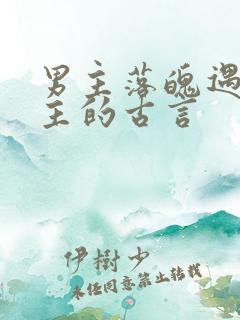 男主落魄遇
主的古言
伊樹少
未经同意禁止转载